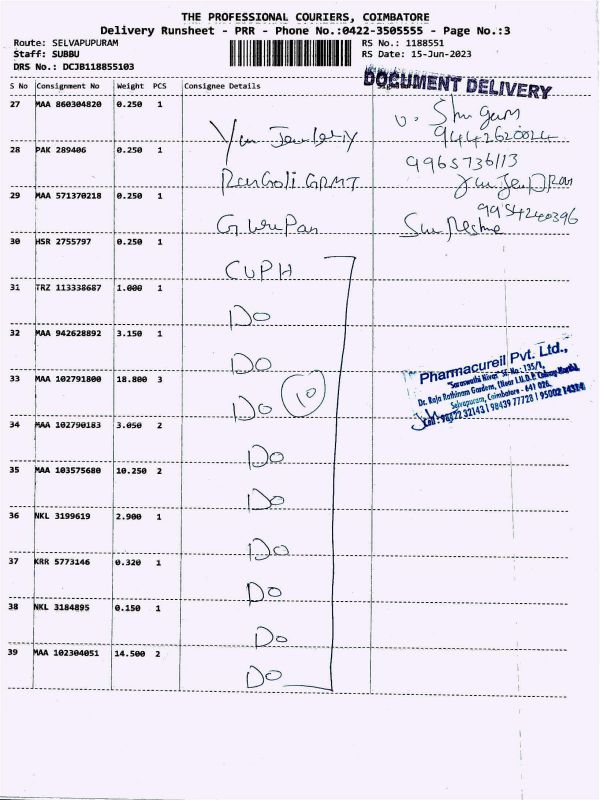 THE PROFESSIONAL COURIERS, COIMBATORE
Delivery Runsheet - PRR - Phone No.:0422-3505555 - Page No.:3
Route: SELVAPUPURAM
RS No.: 1188551
Staff: SUBBU
RS Date: 15-Jun-2023
DRS No.: DCJB118855103
DOCUMENT DELIVERY
S No Consignment No Weight PCS Consignee Details
27 MAA 860304820 0.250 1
9442620024
28 PAK 289406 0.250 1
9965736113
29 MAA 571370218 0.250 1
9954240396
30 HSR 2755797 0.250 1 CUPH
31 TRZ 113338687 1.000 1 Do
32 MAA 942628892 3.150 1 Do
33 MAA 102791800 18.800 3 Do 10
34 MAA 102790183 3.050 2 Do
35 MAA 103575680 10.250 2 Do
36 NKL 3199619 2.900 1 Do
37 KRR 5773146 0.320 1 Do
38 NKL 3184895 0.150 1 Do
39 MAA 102304051 14.500 2 Do
Pharmacureil Pvt. Ltd.,
"Saraswathi Nivas" SF. No.: 135/1,
Dr. Raja Rathinam Gardens, (Near L.I.G.P. Colony North),
Selvapuram, Coimbatore - 641 026.
32143 | 98439 77728 | 95002 14324